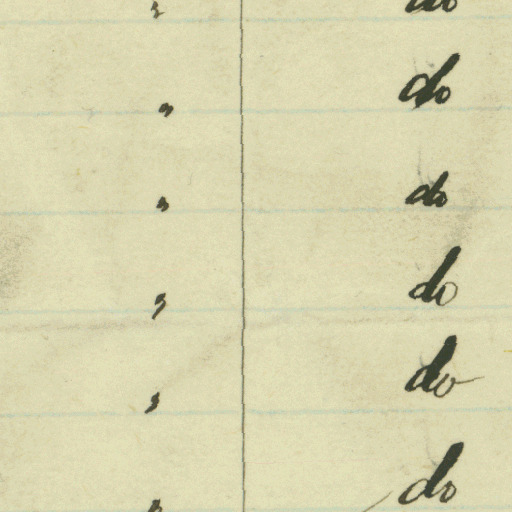 " do
" do
" do
" do
" do
" do